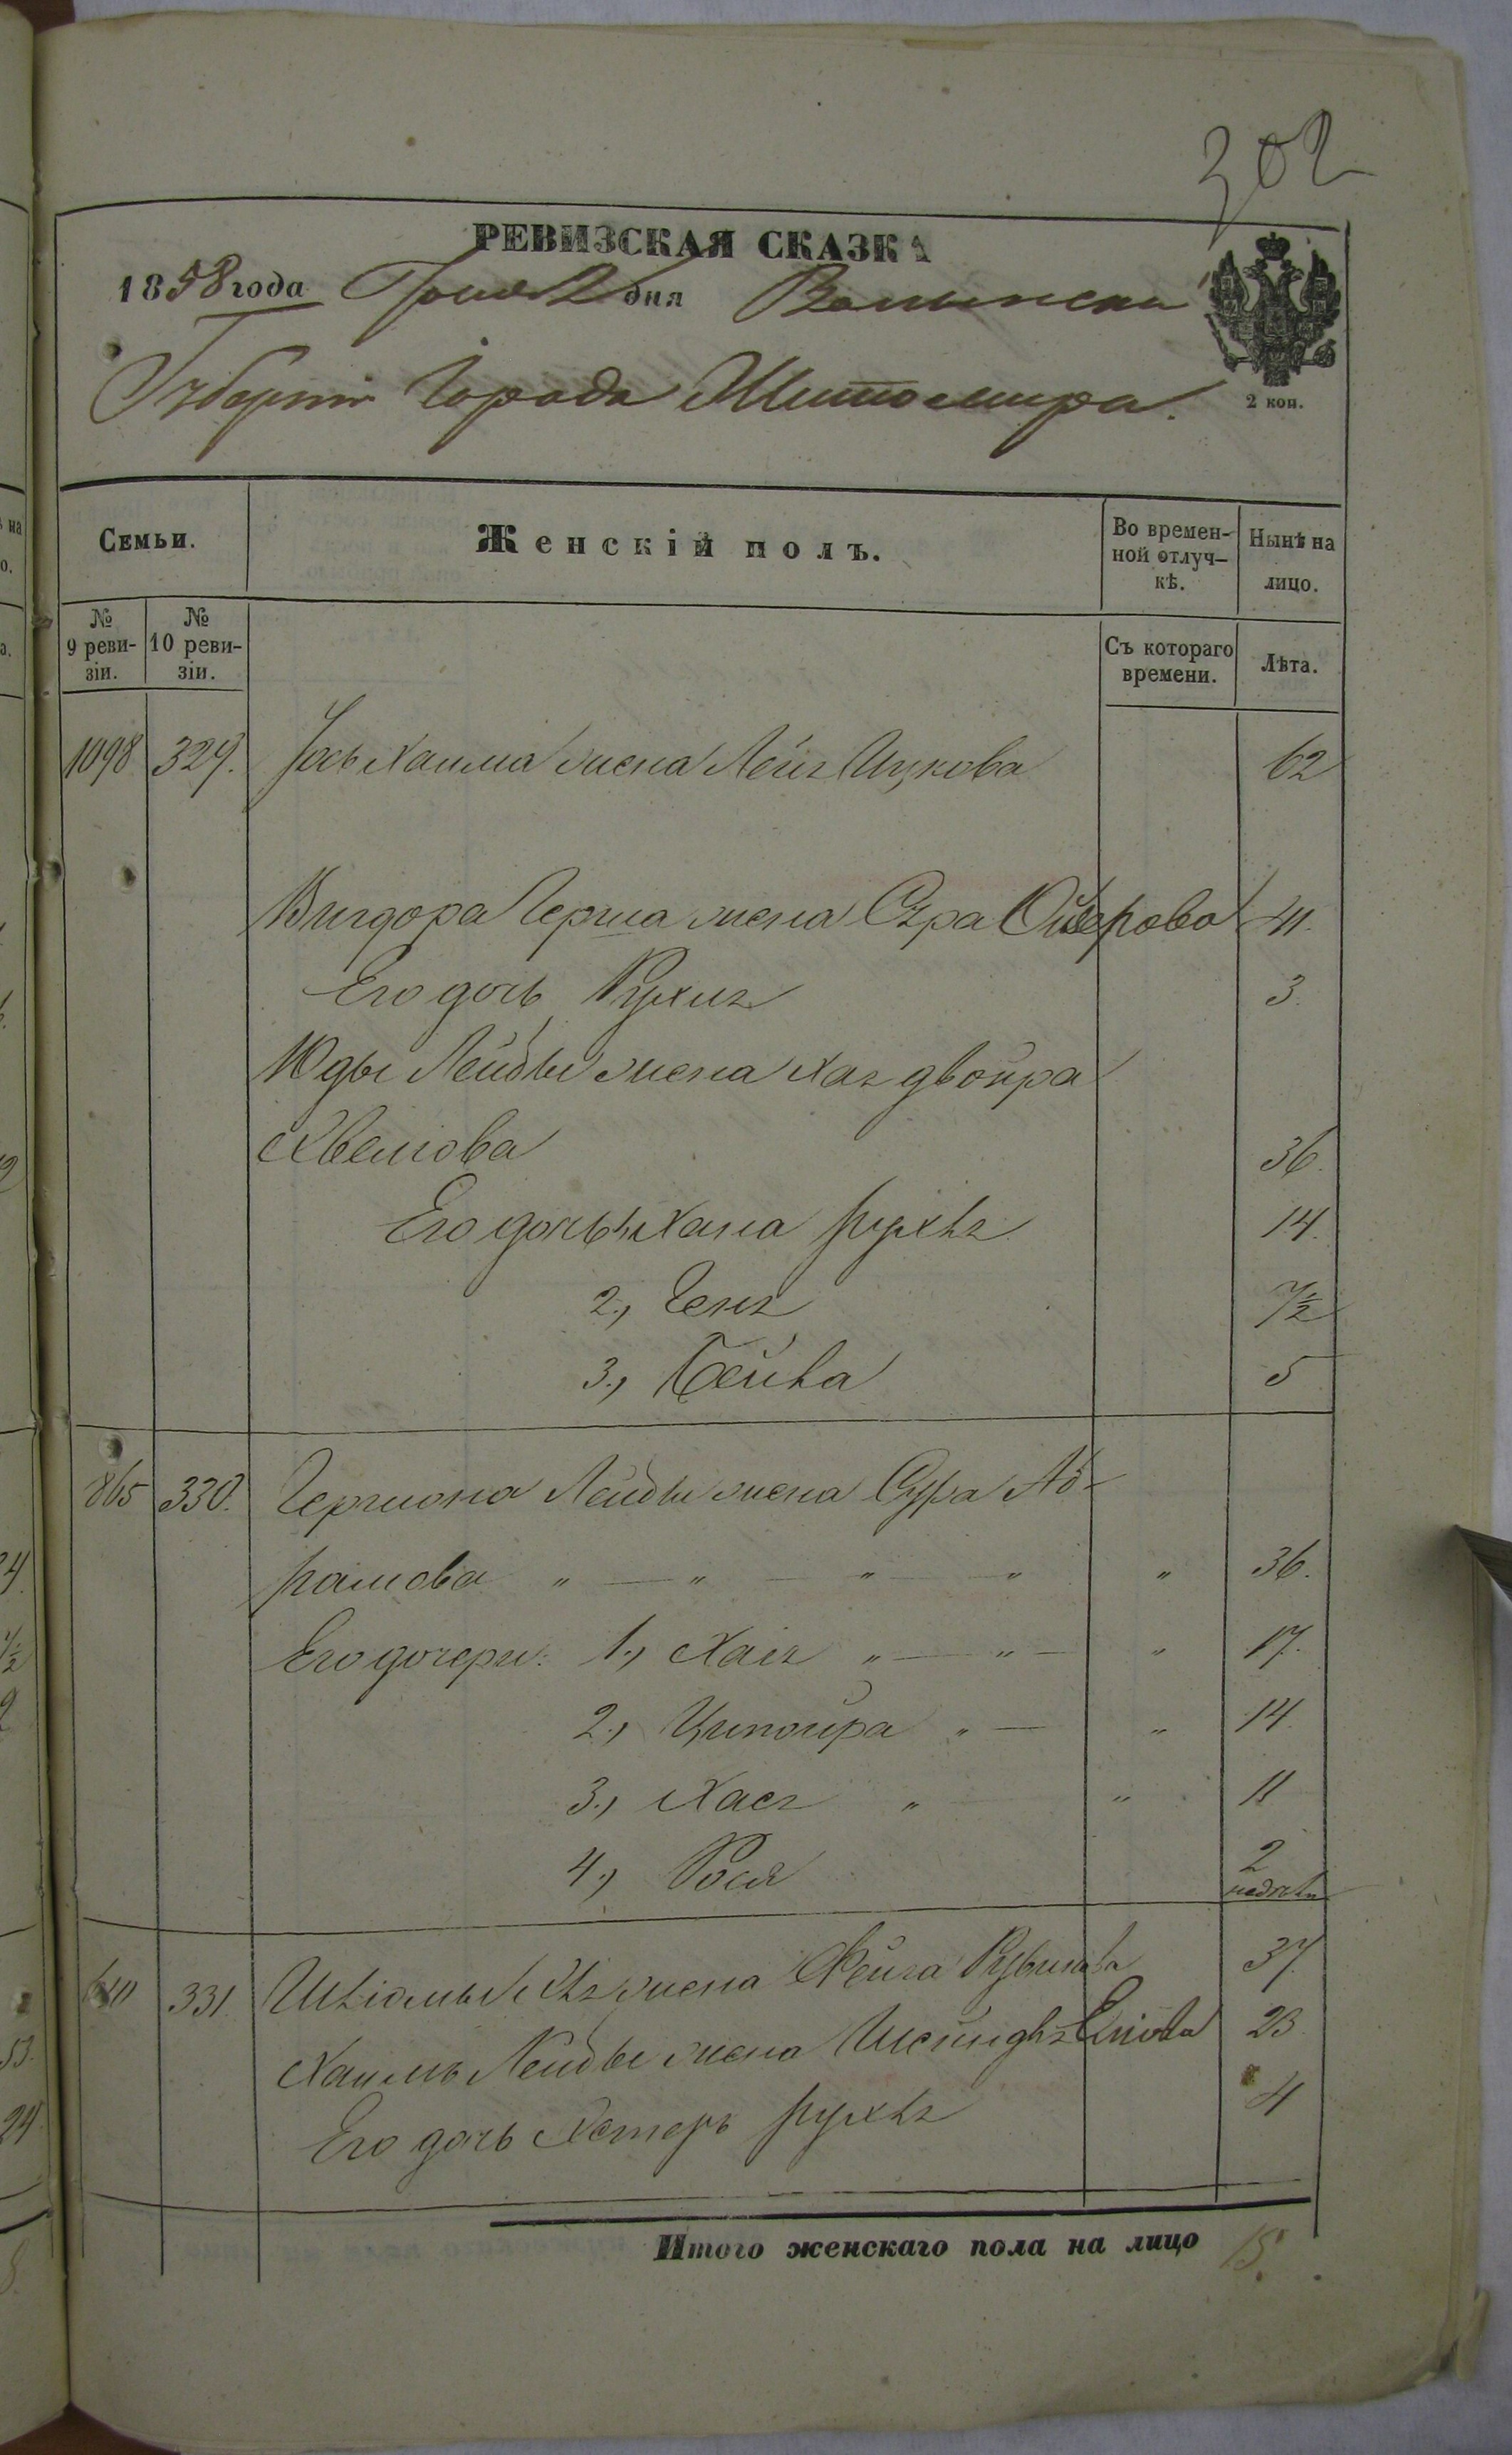 302
РЕВИЗСКАЯ СКАЗКА
1858 года Июня 2 дня Волынской
Губерніи Города Житомира.
2 коп.
Семьи.
Женскій полъ.
Во времен-
ной отлуч-
кѣ.
Нынѣ на
лицо.
№
9 реви-
зіи.
№
10 реви-
зіи.
Съ котораго
времени.
Лѣта.
1098 329. Хаима жена Ицкова 62
Вигдора Герша жена Сура 41.
Его дочь Рухля 3.
Юды Лейбы жена Хая двойра
36.
Его дочь Хана рухля 14.
2., Геня 7½
3., Бейла 5
865 330. Гершона Лейбы жена Сура Аб-
рамова " — " — " — " " 36.
Его дочери: 1., Хая " — " — " 17.
2., Ципойра " — " 14.
3., Хася " " 11
4., Рося 2
недѣли
331. жена Фейга Рувинова 37.
Хаимъ Лейбы жена Шейндля 23.
Его дочь Естеръ рухля 4
Итого женскаго пола на лицо 15.